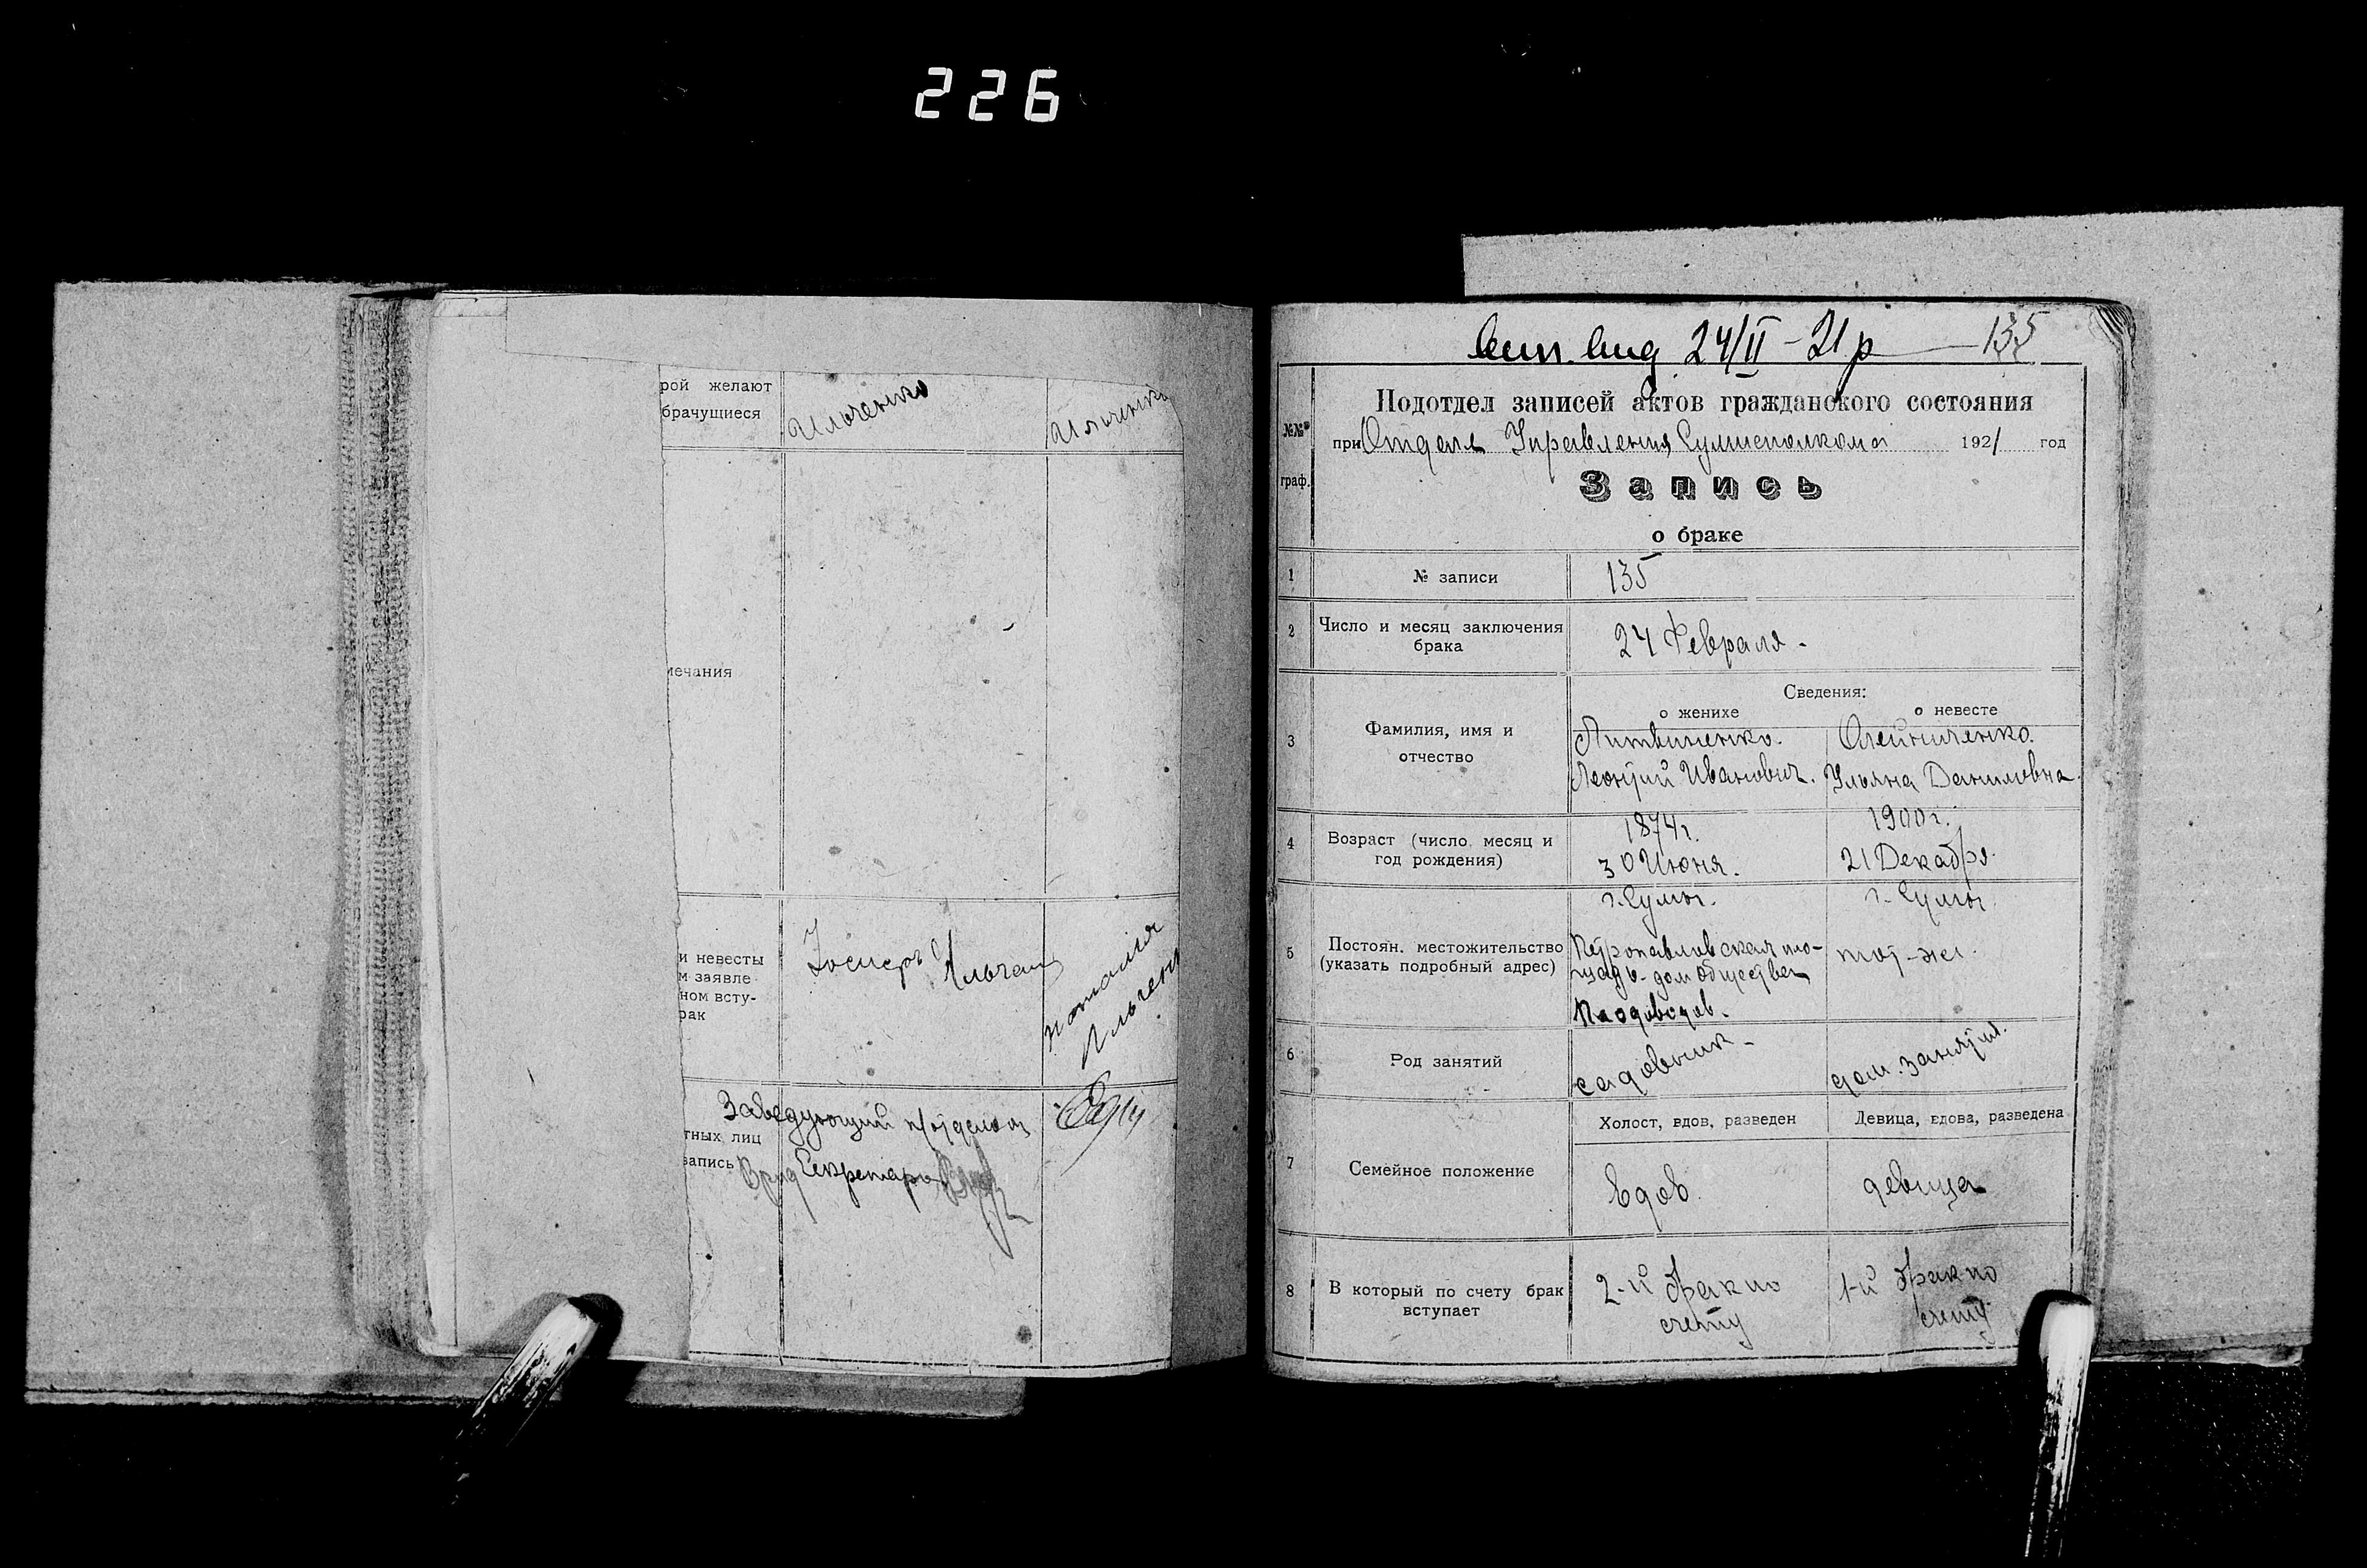 226
рой желают
брачущиеся
Ильченко
Ильченко
мечания
и невесты
м заявле
ном всту-
рак
Ильчен
Наталия
Ильчен
Заведующий п/отделом
тных лиц
запись
Врид Секретарь
24/II - 21 р 135
№№
граф.
Подотдел записей актов гражданского состояния
при Отделе Управления Сумисполкома 1921 год
Запись
о браке
1 № записи 135
2 Число и месяц заключения
брака
24 Февраля.
Сведения:
о женихе о невесте
3 Фамилия, имя и
отчество
Литвиненко. Олейниченко.
Леонтий Иванович. Ульяна Даниловна.
4 Возраст (число, месяц и
год рождения)
1874г. 1900г.
30 Июня. 21 Декабря.
5 Постоян. местожительство
(указать подробный адрес)
г. Сумы. г. Сумы.
Петропавловская пло-
щадь - дом обществен
Плодоводов.
тот-же.
6 Род занятий
садовник - дом. занятия.
7 Семейное положение
Холост, вдов, разведен Девица, вдова, разведена
Вдов. девица
8 В который по счету брак
вступает
2-й брак по
счету
1-й брак по
счету